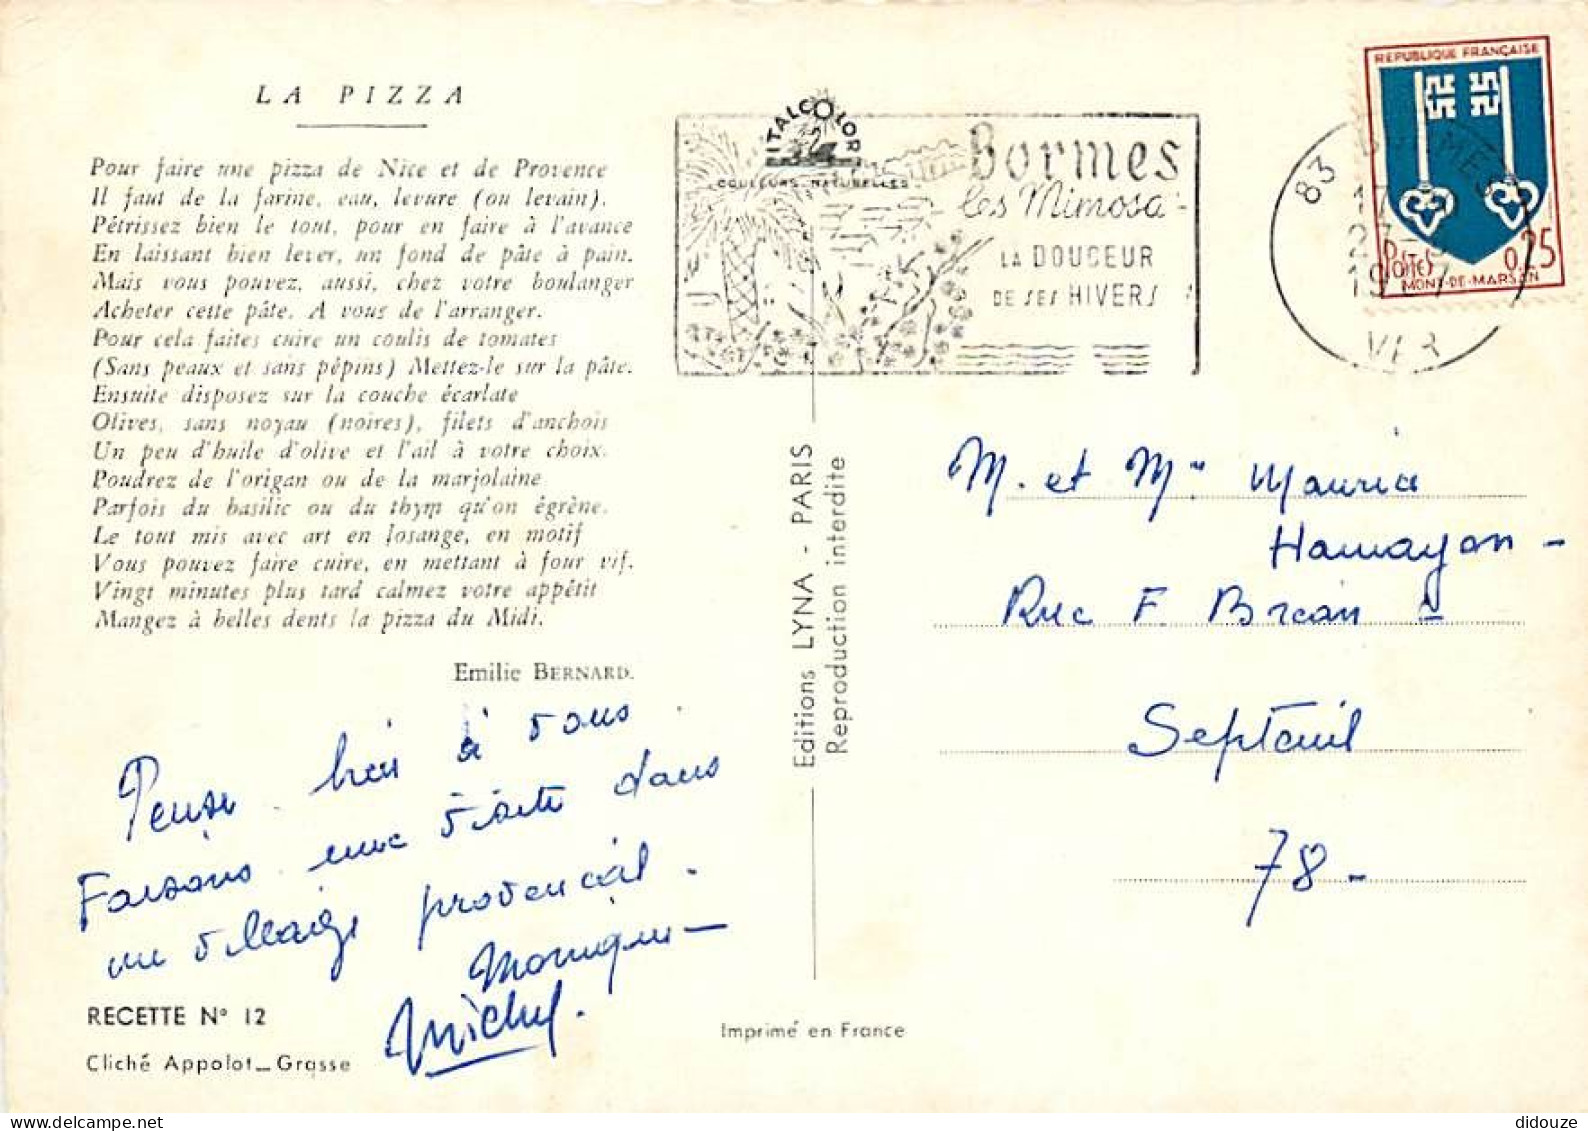 LA PIZZA
Pour faire une pizza de Nice et de Provence
Il faut de la farine, eau, levure (ou levain).
Pétrissez bien le tout, pour en faire à l'avance
En laissant bien lever, un fond de pâte à pain.
Mais vous pouvez, aussi, chez votre boulanger
Acheter cette pâte. A vous de l'arranger.
Pour cela faites cuire un coulis de tomates
(Sans peaux et sans pépins) Mettez-le sur la pâte.
Ensuite disposez sur la couche écarlate
Olives, sans noyau (noires), filets d'anchois
Un peu d'huile d'olive et l'ail à votre choix.
Poudrez de l'origan ou de la marjolaine
Parfois du basilic ou du thym qu'on égrène.
Le tout mis avec art en losange, en motif
Vous pouvez faire cuire, en mettant à four vif.
Vingt minutes plus tard calmez votre appétit
Mangez à belles dents la pizza du Midi.
Emilie BERNARD.
Pense bien à vous.
Faisons une visite dans
un village provençal.
Monique
Michel.
RECETTE N° 12
Cliché Appolot_Grasse
ITALCOLOR
COULEURS NATURELLES
Bormes
les Mimosa
LA DOUCEUR
DE SES HIVERS
Editions LYNA - PARIS
Reproduction interdite
Imprimé en France
REPUBLIQUE FRANÇAISE
POSTES 0,25
MONT-DE-MARSAN
83 BORMES
17
27
1967
VAR
M. et Me Maurice
Hamayon -
Rue F. Brean
Septeuil
78 -
didouze